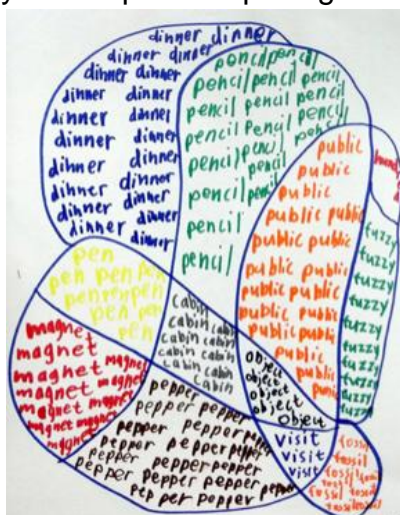 dinner dinner
dinner dinner
dinner dinner
dinner dinner
dinner danner
dinner dinner
dinner dinner
dinner dinner
dinner dinner
dinner dinner
dinner dinner
pencil pencil
pencil pencil pencil
pencil pencil pencil
pencil pencil pencil
pencil pencil
pencil
pencil pencil
pencil
pencil
public
public
public
public public
public public
public public
public public
public public
public public
public
public
fuzzy
fuzzy
fuzzy
fuzzy
fuzzy
fuzzy
fuzzy
fuzzy
fuzzy
pen
pen pen pen
pen pen pen
pen pen
pen
cabin
cabin
cabin cabin
cabin cabin
cabin cabin
cabin
cabin
object
object
object
object
object
magnet
magnet
magnet magnet
magnet magnet
magnet magnet
magnet
pepper
pepper pepper
pepper pepper
pepper pepper pepper
pepper pepper
pepper pepper
pepper pepper pepper
visit
visit
visit
fossil
fossil
fossil
fossil
fossil fossil